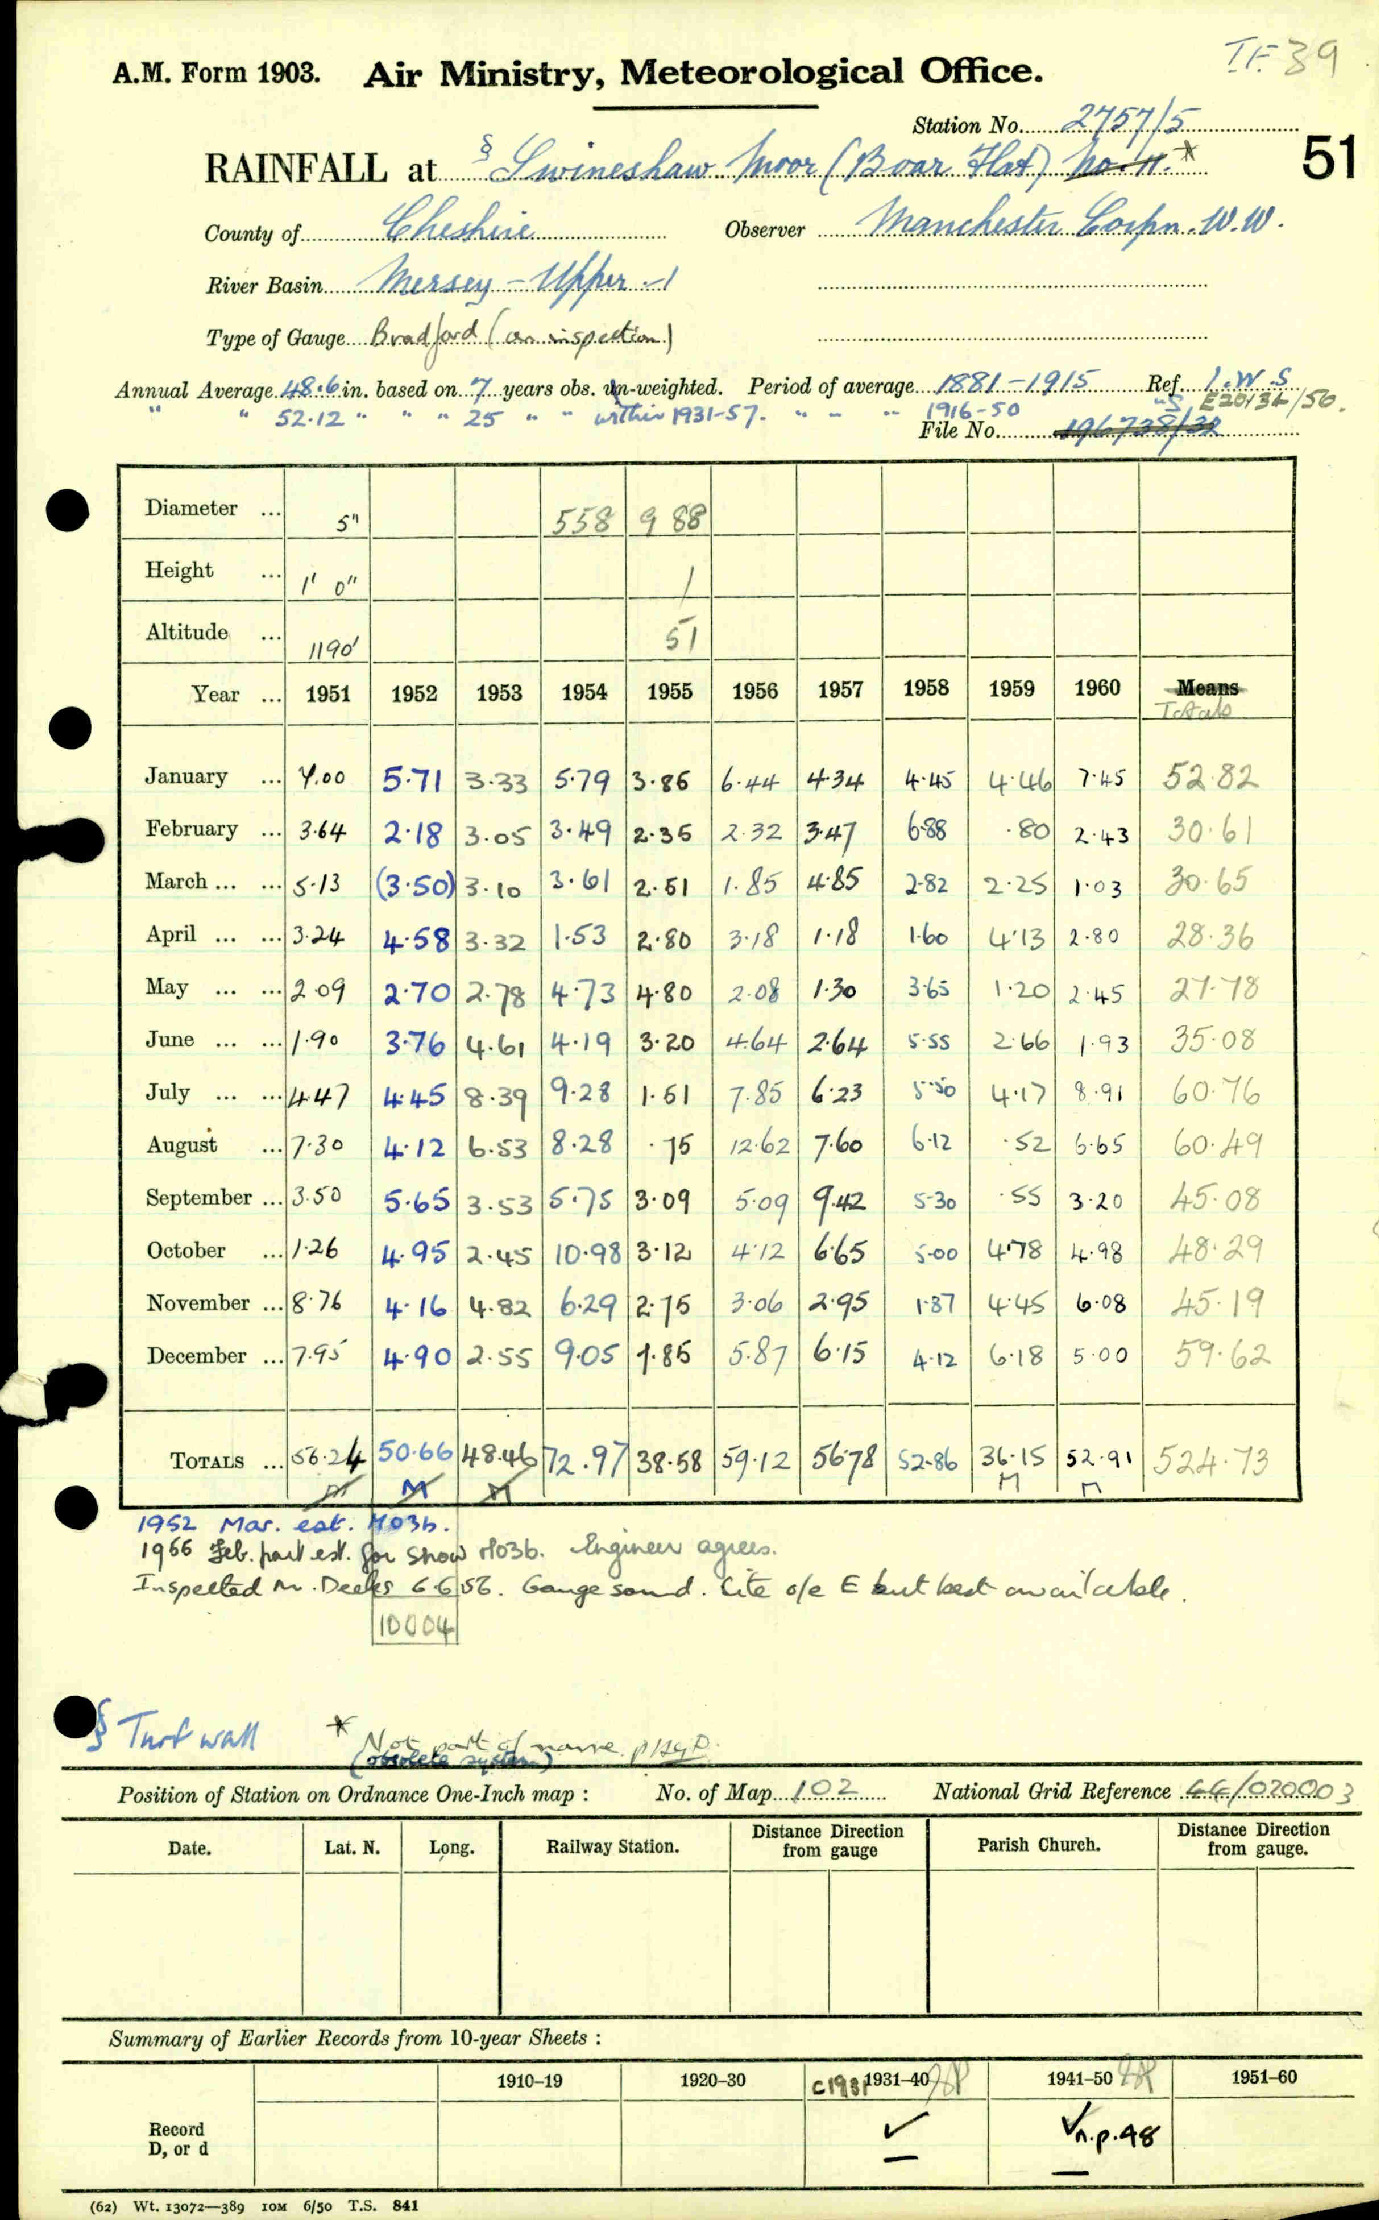 A.M. Form 1903. Air Ministry, Meteorological Office.
51
Station No. 2757/5
RAINFALL at § Swineshaw Moor (Boar Flat) No. 11. *
County of Cheshire Observer Manchester Corpn. W.W.
River Basin Mersey - Upper - 1
Type of Gauge Bradford (on inspection)
Annual Average 48.6 in. based on 7 years obs. un-weighted. Period of average 1881-1915 Ref. I.W.S.
" " 52.12 " " " 25 " " within 1931-57. " " " 1916-50
File No. 196738/32
Diameter ... 5" 558 988
Height ... 1' 0" 1
Altitude ... 1190' 51
Year ... 1951 1952 1953 1954 1955 1956 1957 1958 1959 1960 Means
Totals
January ... 7.00 5.71 3.33 5.79 3.85 6.44 4.34 4.45 4.46 7.45 52.82
February ... 3.64 2.18 3.05 3.49 2.35 2.32 3.47 6.88 .80 2.43 30.61
March ... ... 5.13 (3.50) 3.10 3.61 2.51 1.85 4.85 2.82 2.25 1.03 30.65
April ... ... 3.24 4.58 3.32 1.53 2.80 3.18 1.18 1.60 4.13 2.80 28.36
May ... ... 2.09 2.70 2.78 4.73 4.80 2.08 1.30 3.65 1.20 2.45 27.78
June ... ... 1.90 3.76 4.61 4.19 3.20 4.64 2.64 5.55 2.66 1.93 35.08
July ... ... 4.47 4.45 8.39 9.28 1.51 7.85 6.23 5.50 4.17 8.91 60.76
August ... 7.30 4.12 6.53 8.28 .75 12.62 7.60 6.12 .52 6.65 60.49
September ... 3.50 5.65 3.53 5.75 3.09 5.09 9.42 5.30 .55 3.20 45.08
October ... 1.26 4.95 2.45 10.98 3.12 4.12 6.65 5.00 4.78 4.98 48.29
November ... 8.76 4.16 4.82 6.29 2.75 3.06 2.95 1.87 4.45 6.08 45.19
December ... 7.95 4.90 2.55 9.05 7.85 5.87 6.15 4.12 6.18 5.00 59.62
TOTALS ... 56.24 50.66 48.46 72.97 38.58 59.12 56.78 52.86 36.15 52.91 524.73
M M M M M
1952 Mar. est. M03b.
1955 Feb. part est. for snow M03b. Engineer agrees.
Inspected Mr. Deeks 6.6.56. Gauge sound. Site o/e E but best available.
10004
§ Turf wall * Not part of name
(obsolete system)
Position of Station on Ordnance One-Inch map : No. of Map 102 National Grid Reference 44/020003
Date. Lat. N. Long. Railway Station. Distance from gauge Direction Parish Church. Distance from gauge. Direction
Summary of Earlier Records from 10-year Sheets :
1910–19 1920–30 c1931 1931–40 1941–50 1951–60
Record
D, or d
✓ ✓ n.p. 48
(62) Wt. 13072—389 10M 6/50 T.S. 841